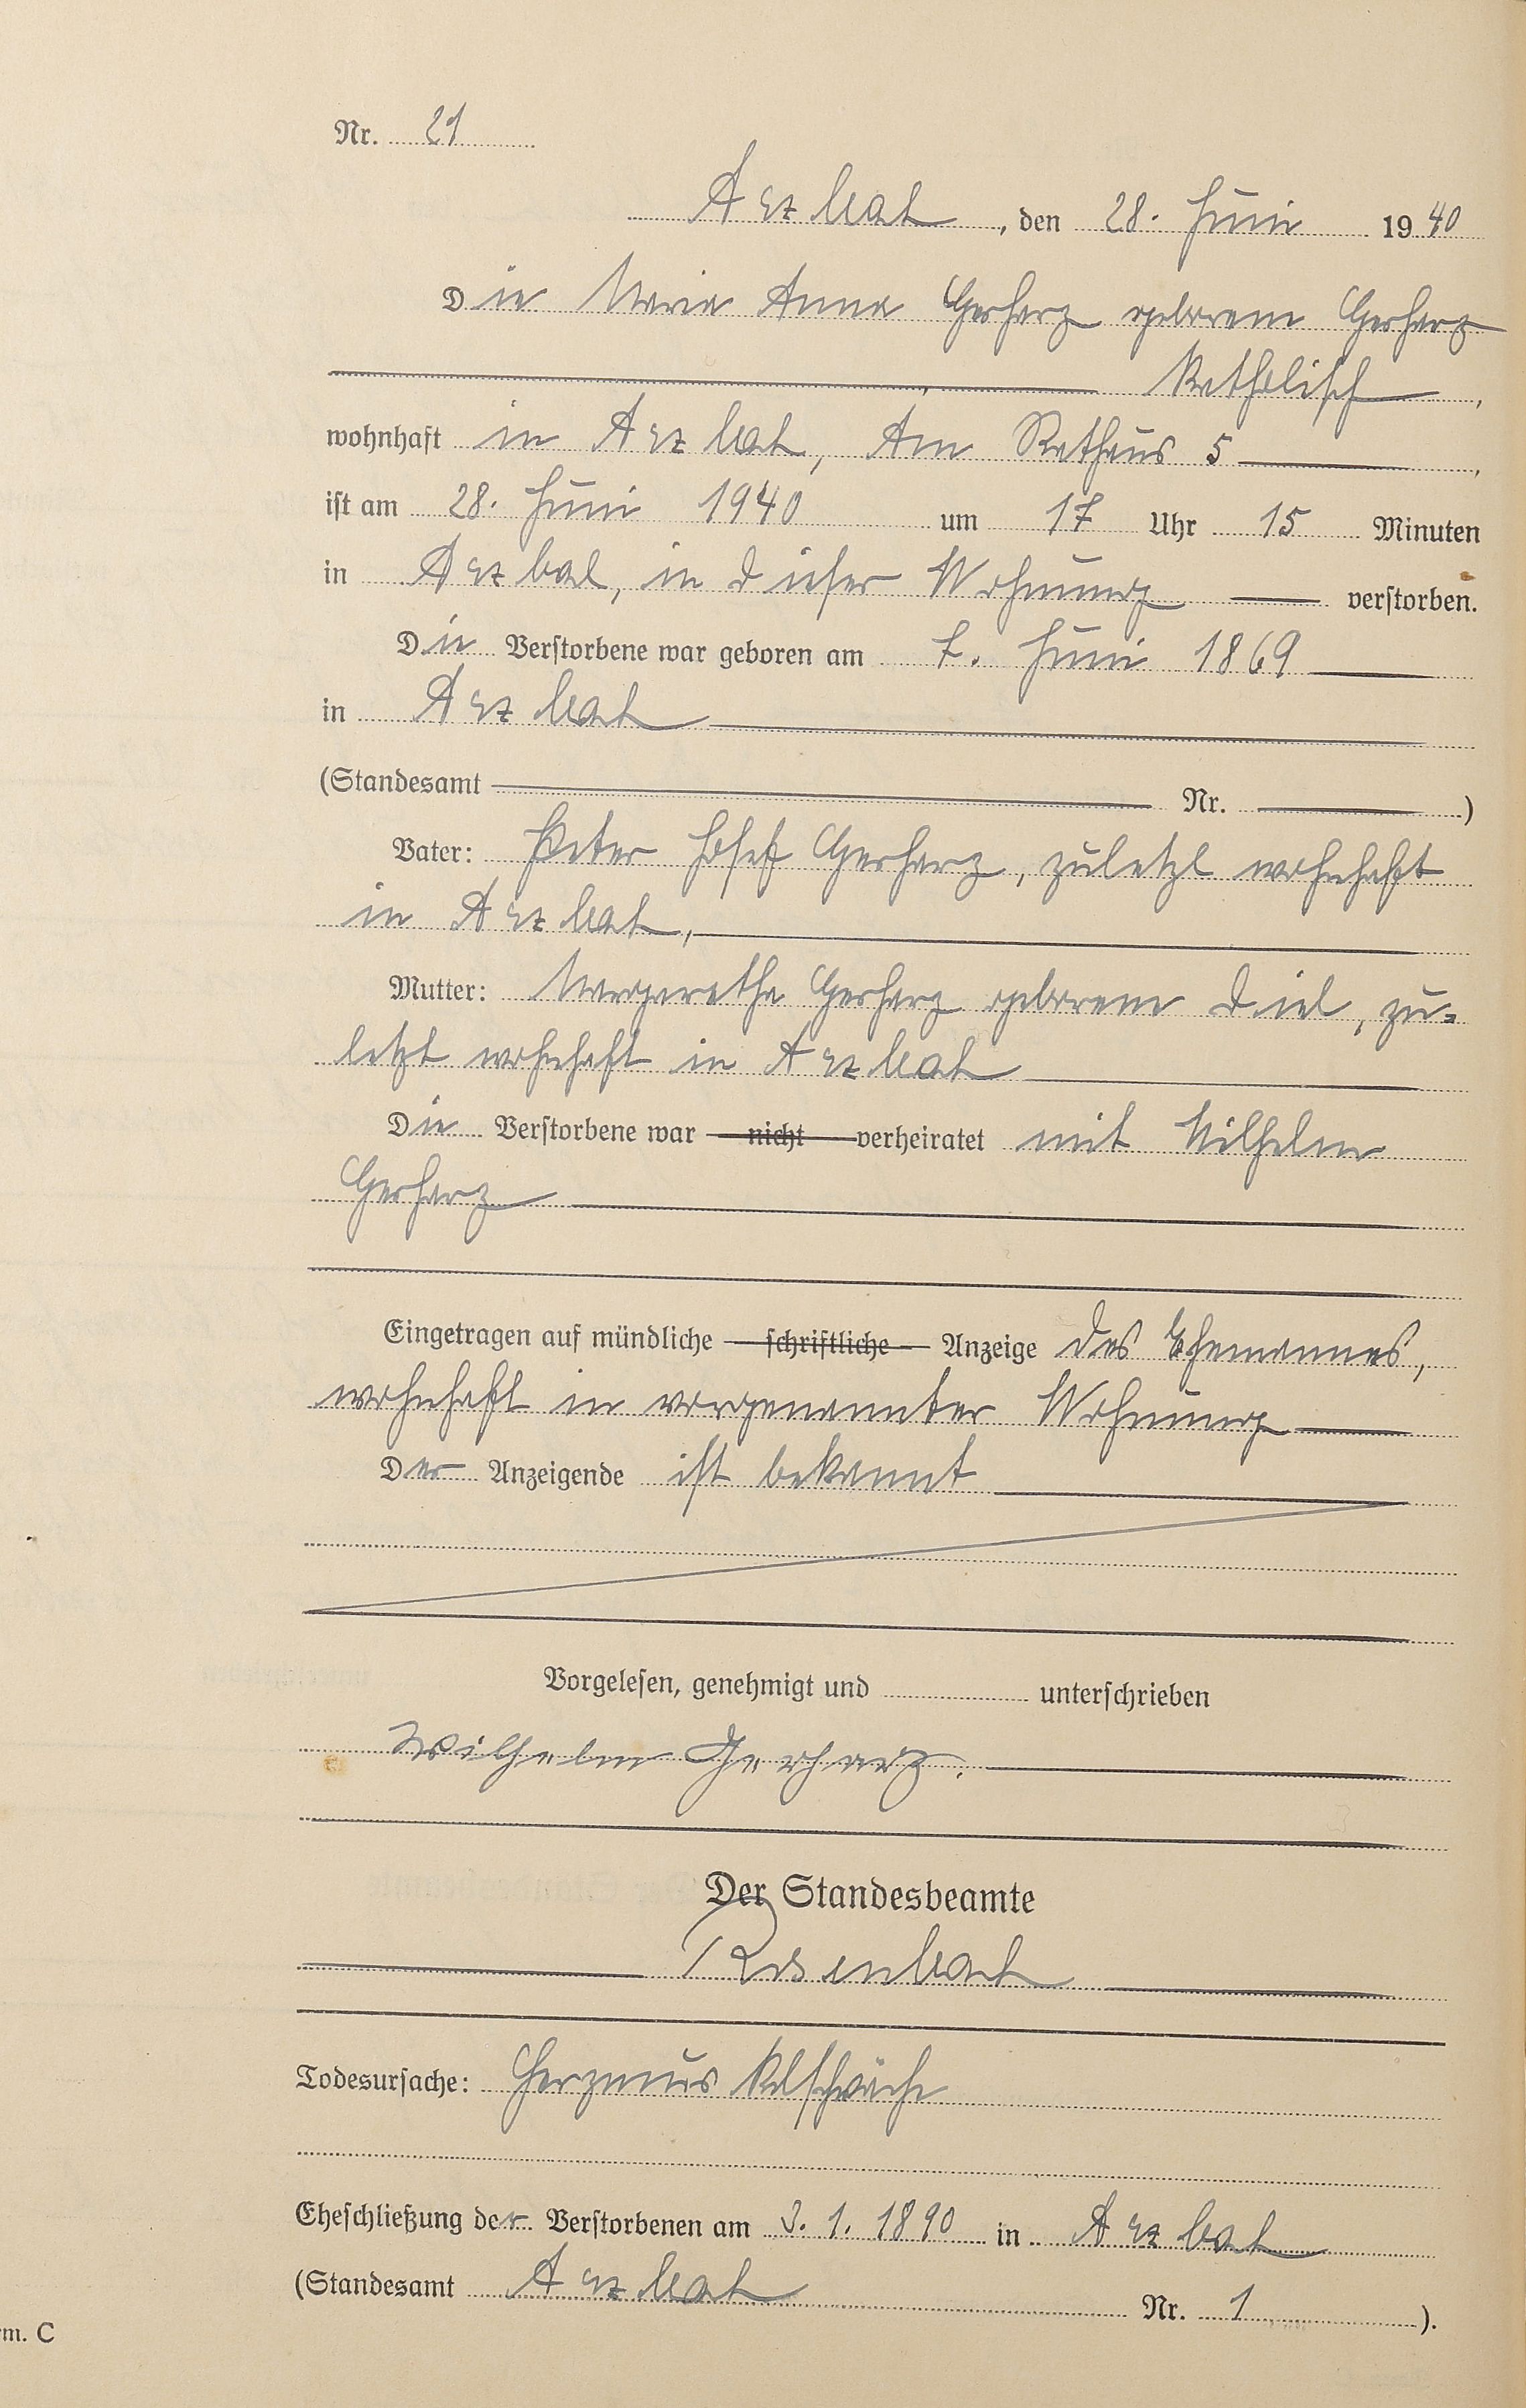 Nr. 21
Arzbach, den 28. Juni 1940
Die Maria Anna Gerharz geborene Gerharz
katholisch,
wohnhaft in Arzbach, Am Rathaus 5,
ist am 28. Juni 1940 um 17 Uhr 15 Minuten
in Arzbach, in dieser Wohnung verstorben.
Die Verstorbene war geboren am 7. Juni 1869
in Arzbach
(Standesamt Nr. )
Vater: Peter Josef Gerharz, zuletzt wohnhaft
in Arzbach,
Mutter: Margaretha Gerharz geborene Diel, zu=
letzt wohnhaft in Arzbach
Die Verstorbene war nicht verheiratet mit Wilhelm
Gerharz
Eingetragen auf mündliche schriftliche Anzeige des Ehemannes,
wohnhaft in vorgenannter Wohnung
Der Anzeigende ist bekannt
Vorgelesen, genehmigt und unterschrieben
Wilhelm Gerharz.
Der Standesbeamte
Rosenbach
Todesursache: Herzmuskelschwäche
Eheschließung der Verstorbenen am 3. 1. 1890 in Arzbach
(Standesamt Arzbach Nr. 1 ).
rm. C